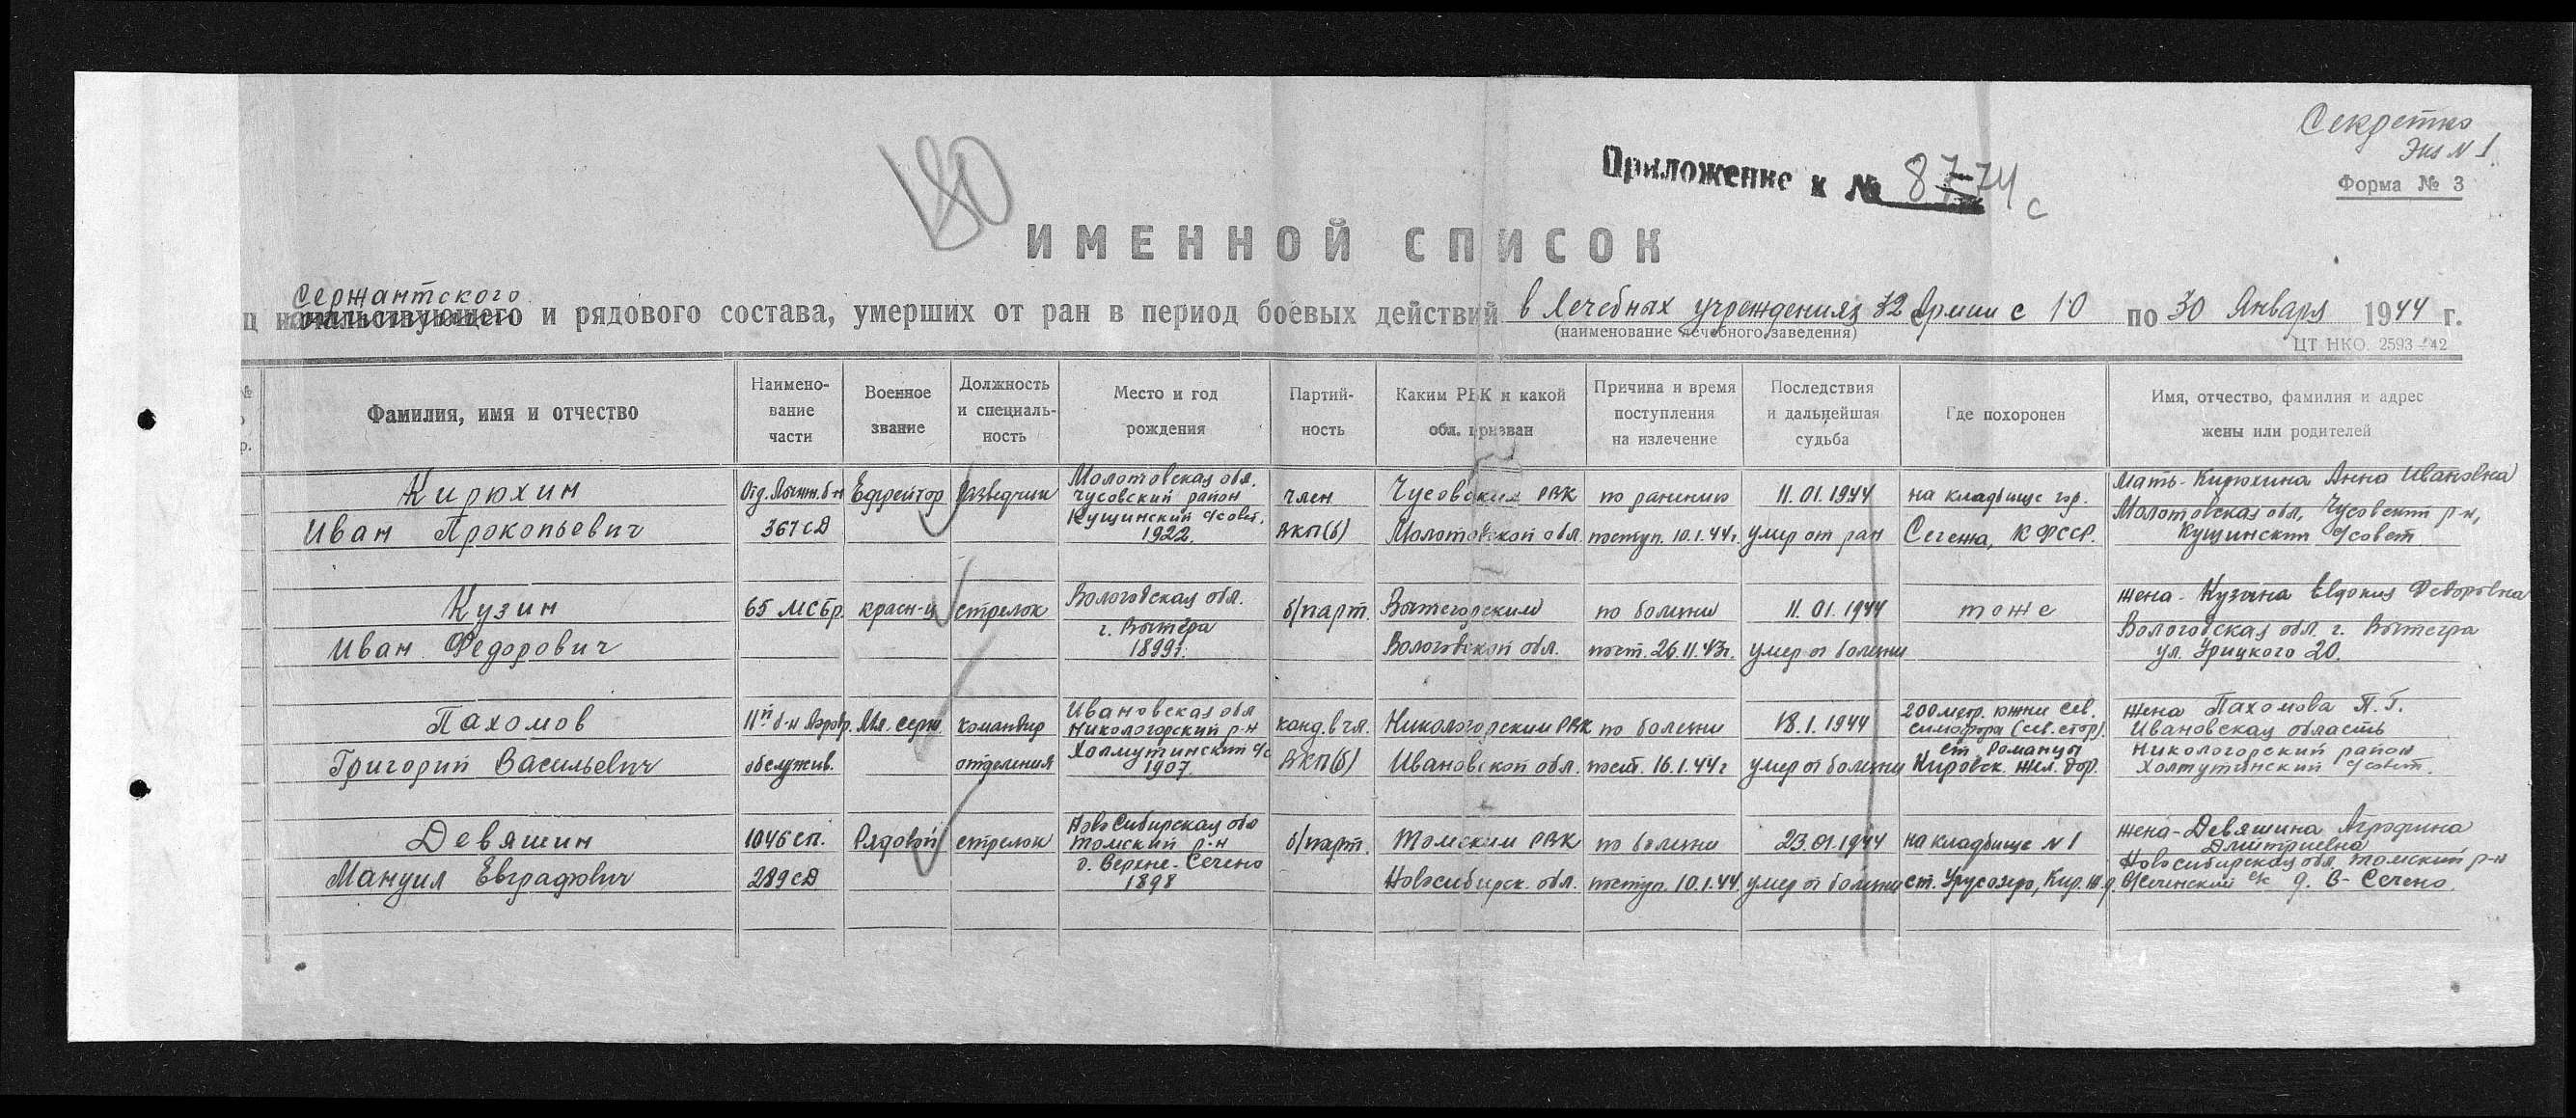 Секретно
Экз N 1
Форма № 3
180
Приложение к № 8774с
ИМЕННОЙ СПИСОК
сержантского
начальствующего и рядового состава, умерших от ран в период боевых действий в лечебных учреждениях 32 Армии с 10 по 30 Января 1944 г.
(наименование лечебного заведения)
ЦТ НКО. 2593—42
Фамилия, имя и отчество
Наимено-
вание
части
Военное
звание
Должность
и специаль-
ность
Место и год
рождения
Партий-
ность
Каким РВК и какой
обл. призван
Причина и время
поступления
на излечение
Последствия
и дальнейшая
судьба
Где похоронен
Имя, отчество, фамилия и адрес
жены или родителей
Кирюхин
Иван Прокопьевич
Отд. Лыжн. б-н
367 СД
Ефрейтор
разведчик
Молотовская обл.
Чусовский район
Кущинский с/совет.
1922.
член
ВКП(б)
Чусовским РВК
Молотовской обл.
по ранению
поступ. 10.1.44г.
11.01.1944
умер от ран
на кладбище гор.
Сегежа, КФССР.
Мать - Кирюхина Анна Ивановна
Молотовская обл, Чусовский р-н,
Кущинский с/совет
Кузин
Иван Федорович
65 МСбр.
красн-ц
стрелок
Вологодская обл.
г. Вытегра
1899г.
б/парт.
Вытегорским
Вологодской обл.
по болезни
пост. 26.11.43г.
11.01.1944
умер от болезни
тоже
жена - Кузина Евдокия Федоровна
Вологодская обл. г. Вытегра
ул. Урицкого 20.
Пахомов
Григорий Васильевич
11й б-н Аэродр.
обслужив.
Мл. серж
командир
отделения
Ивановская обл
Никологорский р-н
Холмутинский с/с
1907.
канд. в чл.
ВКП(б)
Никологорским РВК
Ивановской обл.
по болезни
пост. 16.1.44г
18.1.1944
умер от болезни
200 метр. южн сев.
симофора (сев. стор).
ст. Романцы
Кировск. жел. дор.
жена Пахомова П. Г.
Ивановская область
Никологорский район
Холмутинский с/совет.
Девяшин
Мануил Евграфович
1046 сп.
289 СД
Рядовой
стрелок
Новосибирская обл
Томский р-н
д. Верхне-Сечено
1898
б/парт.
Томским РВК
Новосибирск. обл.
по болезни
поступ. 10.1.44.
23.01.1944
умер от болезни
на кладбище N 1
ст. Урусозеро, Кир. ж.д.
жена - Девяшина Агрофина
Дмитриевна
Новосибирская обл. Томский р-н
В/Сеченский с/с д. В-Сечено.